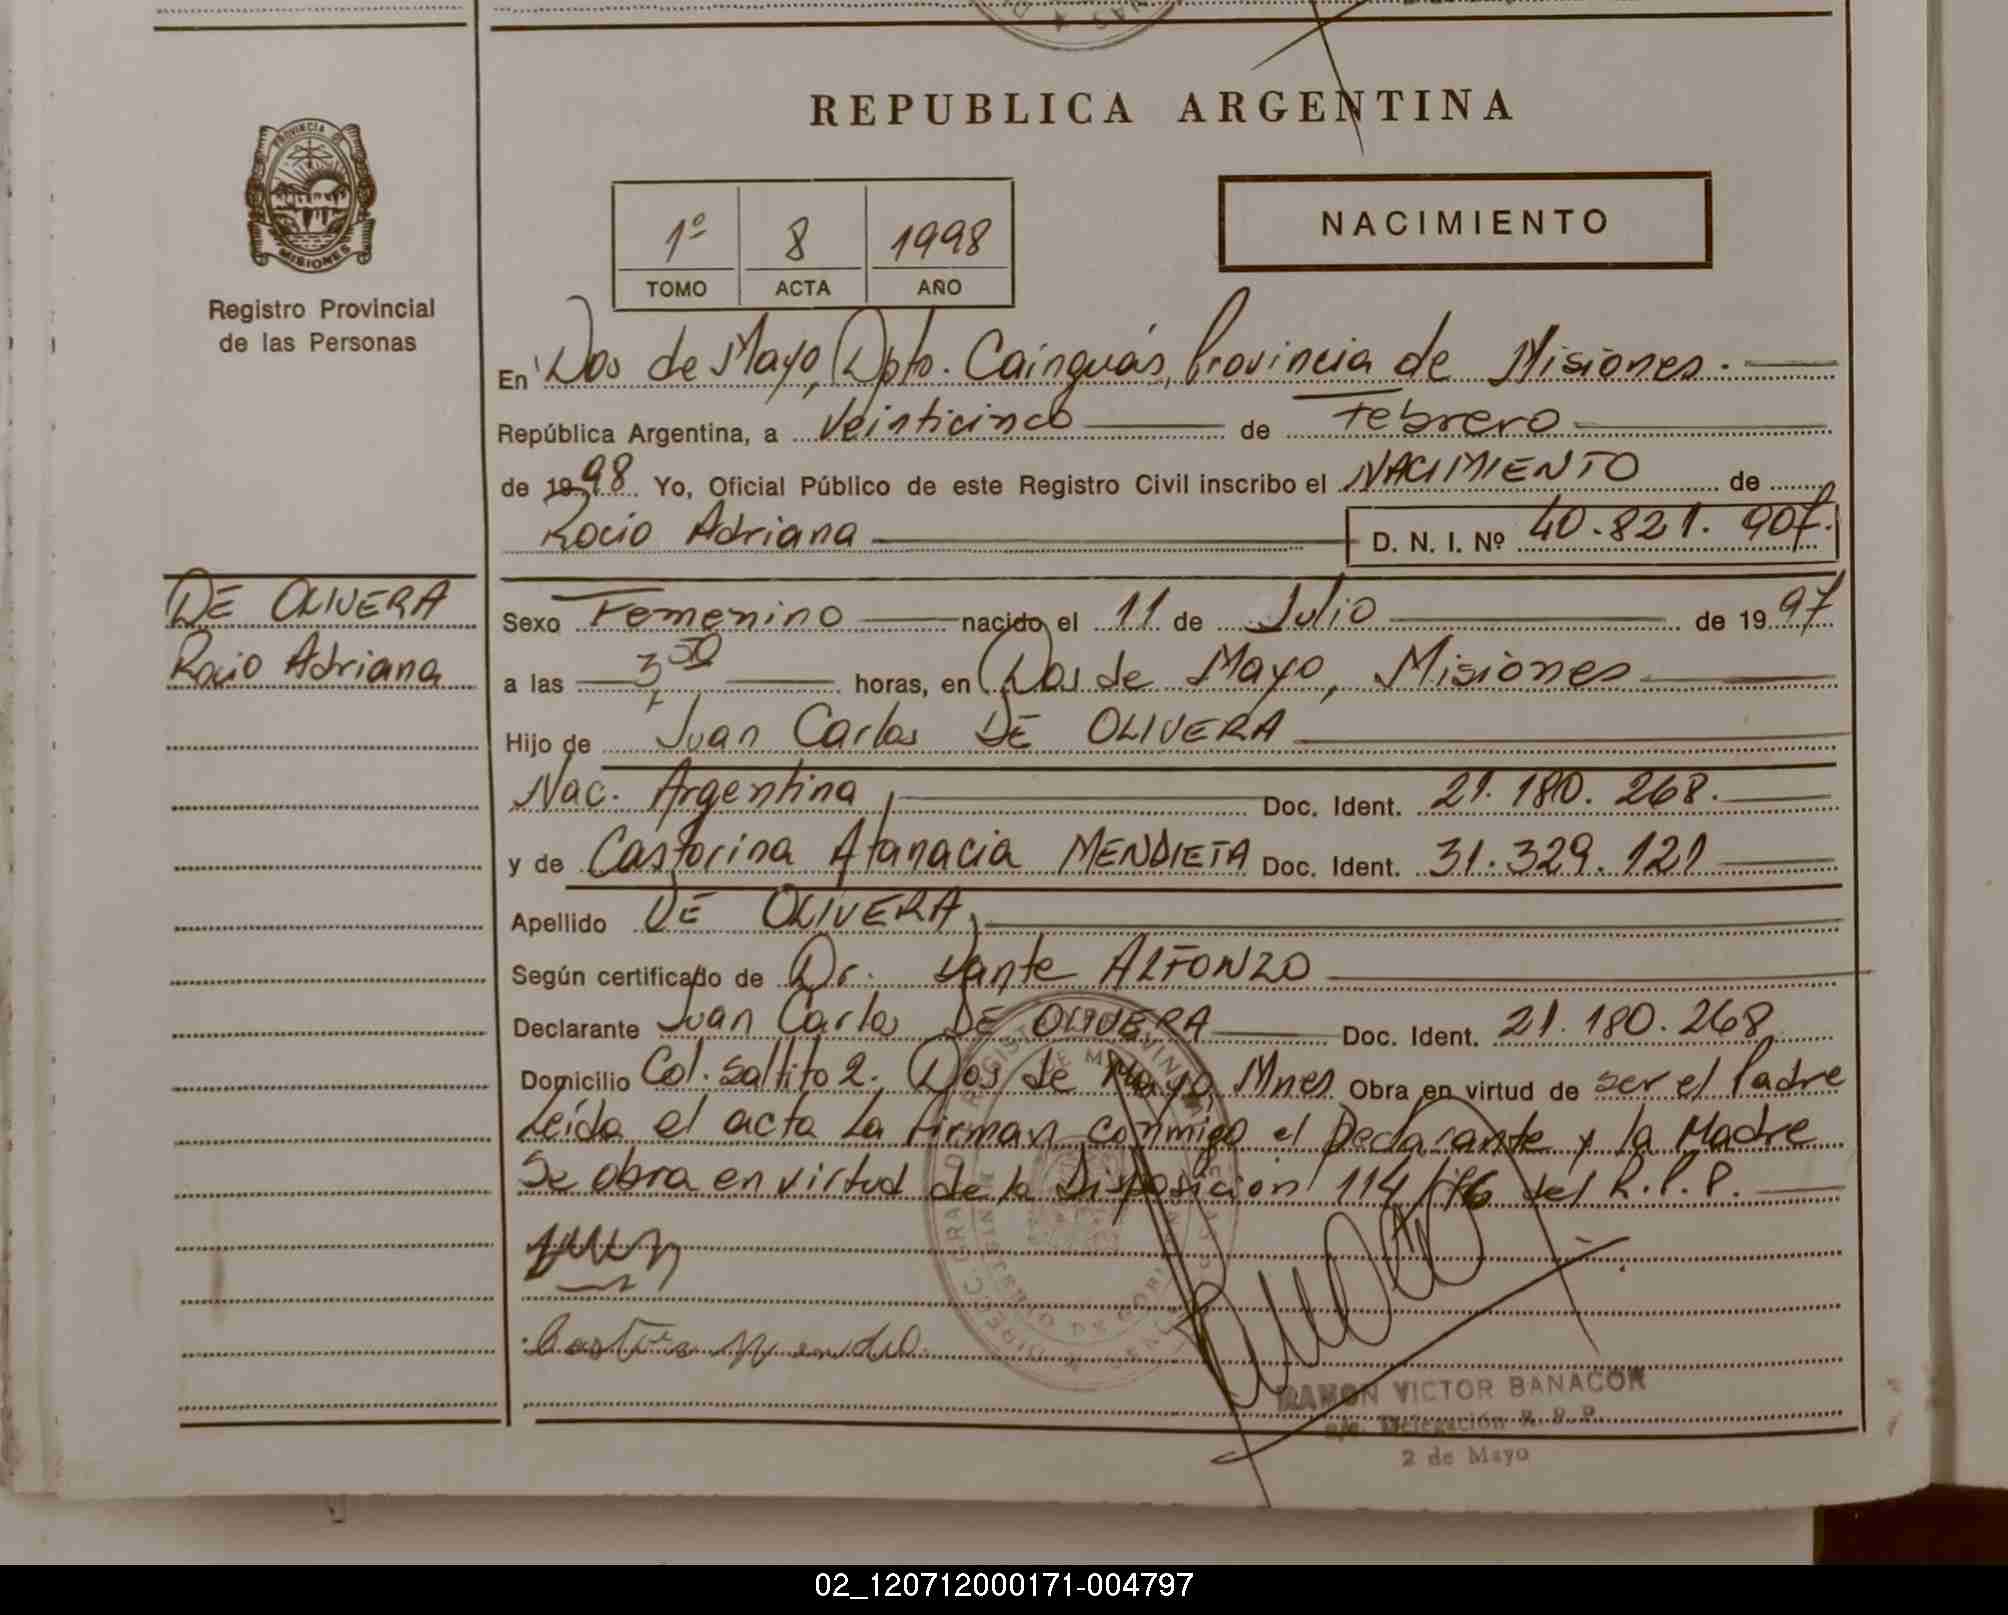 REPUBLICA ARGENTINA
PROVINCIA DE
MISIONES
Registro Provincial
de las Personas
1º 8 1998
TOMO ACTA AÑO
NACIMIENTO
En Dos de Mayo, Dpto. Cainguás, Provincia de Misiones.
República Argentina, a Veinticinco de Febrero
de 1998 Yo, Oficial Público de este Registro Civil inscribo el NACIMIENTO de
Rocio Adriana D. N. I. Nº 40.821.907.
DE OLIVERA
Rocio Adriana
Sexo Femenino nacido el 11 de Julio de 1997
a las 3,50 horas, en Dos de Mayo, Misiones
Hijo de Juan Carlos DE OLIVERA
Nac. Argentina Doc. Ident. 21.180.268.
y de Castorina Atanacia MENDIETA Doc. Ident. 31.329.121
Apellido DE OLIVERA
Según certificado de Dr. Dante ALFONZO
Declarante Juan Carlos DE OLIVERA Doc. Ident. 21.180.268
Domicilio Col. Saltito 2. Dos de Mayo, Mnes Obra en virtud de ser el Padre
Leída el acta La firman conmigo el Declarante y la Madre
Se obra en virtud de la Disposición 114/ del R.P.P.
RAMON VICTOR BANACOR
Delegación R. P. P.
2 de Mayo
02_120712000171-004797